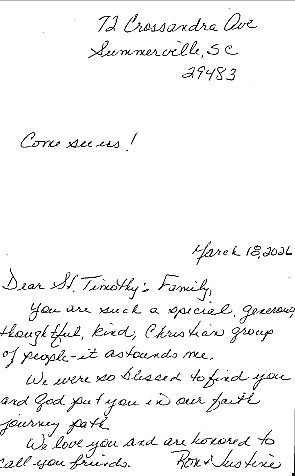 72 Crossandra Ave
Summerville, SC
29483
Come see us!
March 18, 2026
Dear St. Timothy's Family,
You are such a special, generous
thoughtful, kind, Christian group
of people - it astounds me.
We were so blessed to find you
and God put you in our faith
journey path.
We love you and are honored to
call you friends. Ron & Justine